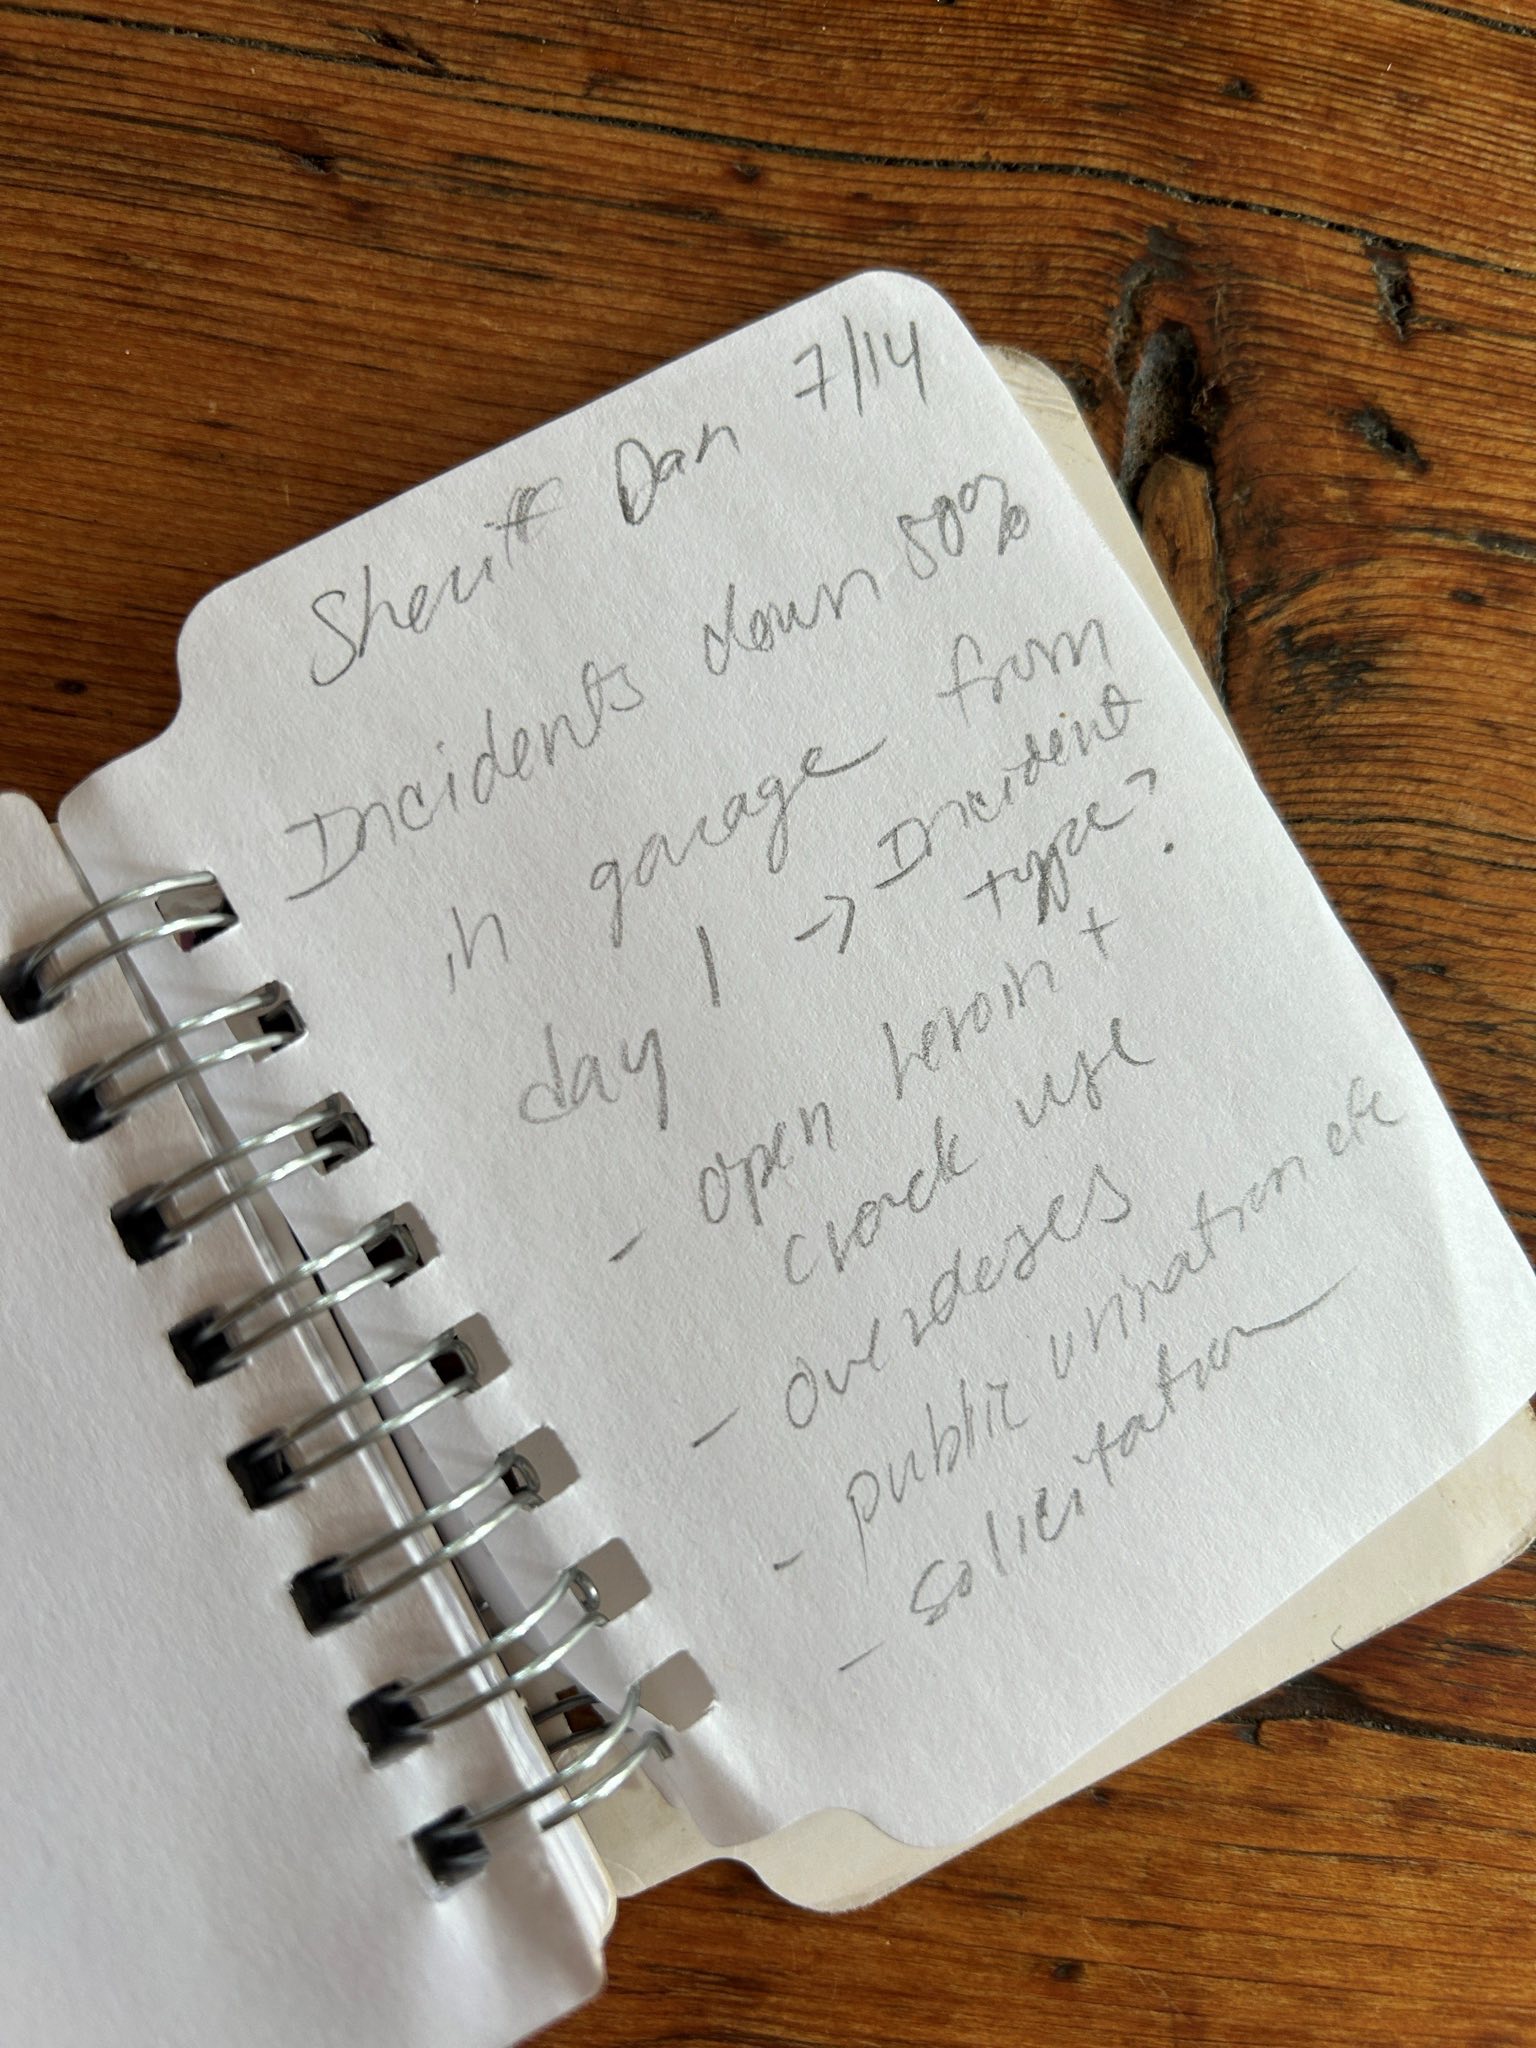 Sheriff Dan 7/14
Incidents down 80%
in garage from
day 1 -> Incident
type?
- open heroin +
crack use
- overdoses
- public urination etc
- solicitation